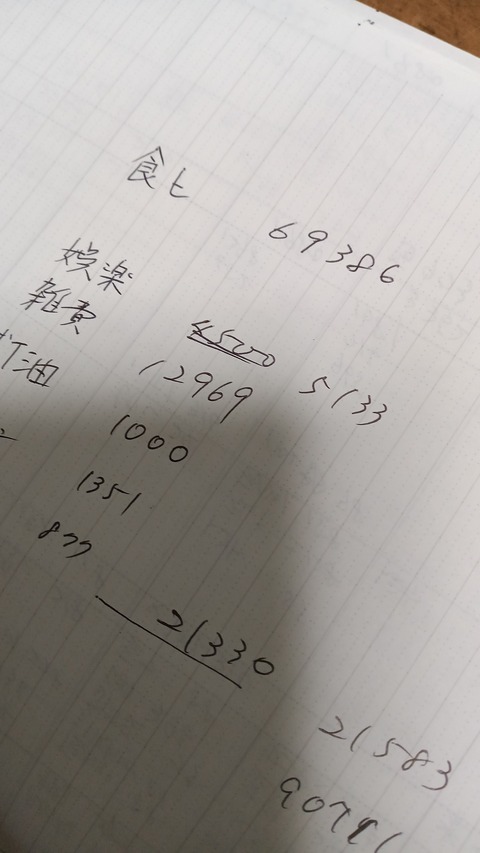 食ヒ 69386
娯楽 4500 5133
雑費 12969
灯油 1000
1351
877
21330
21583